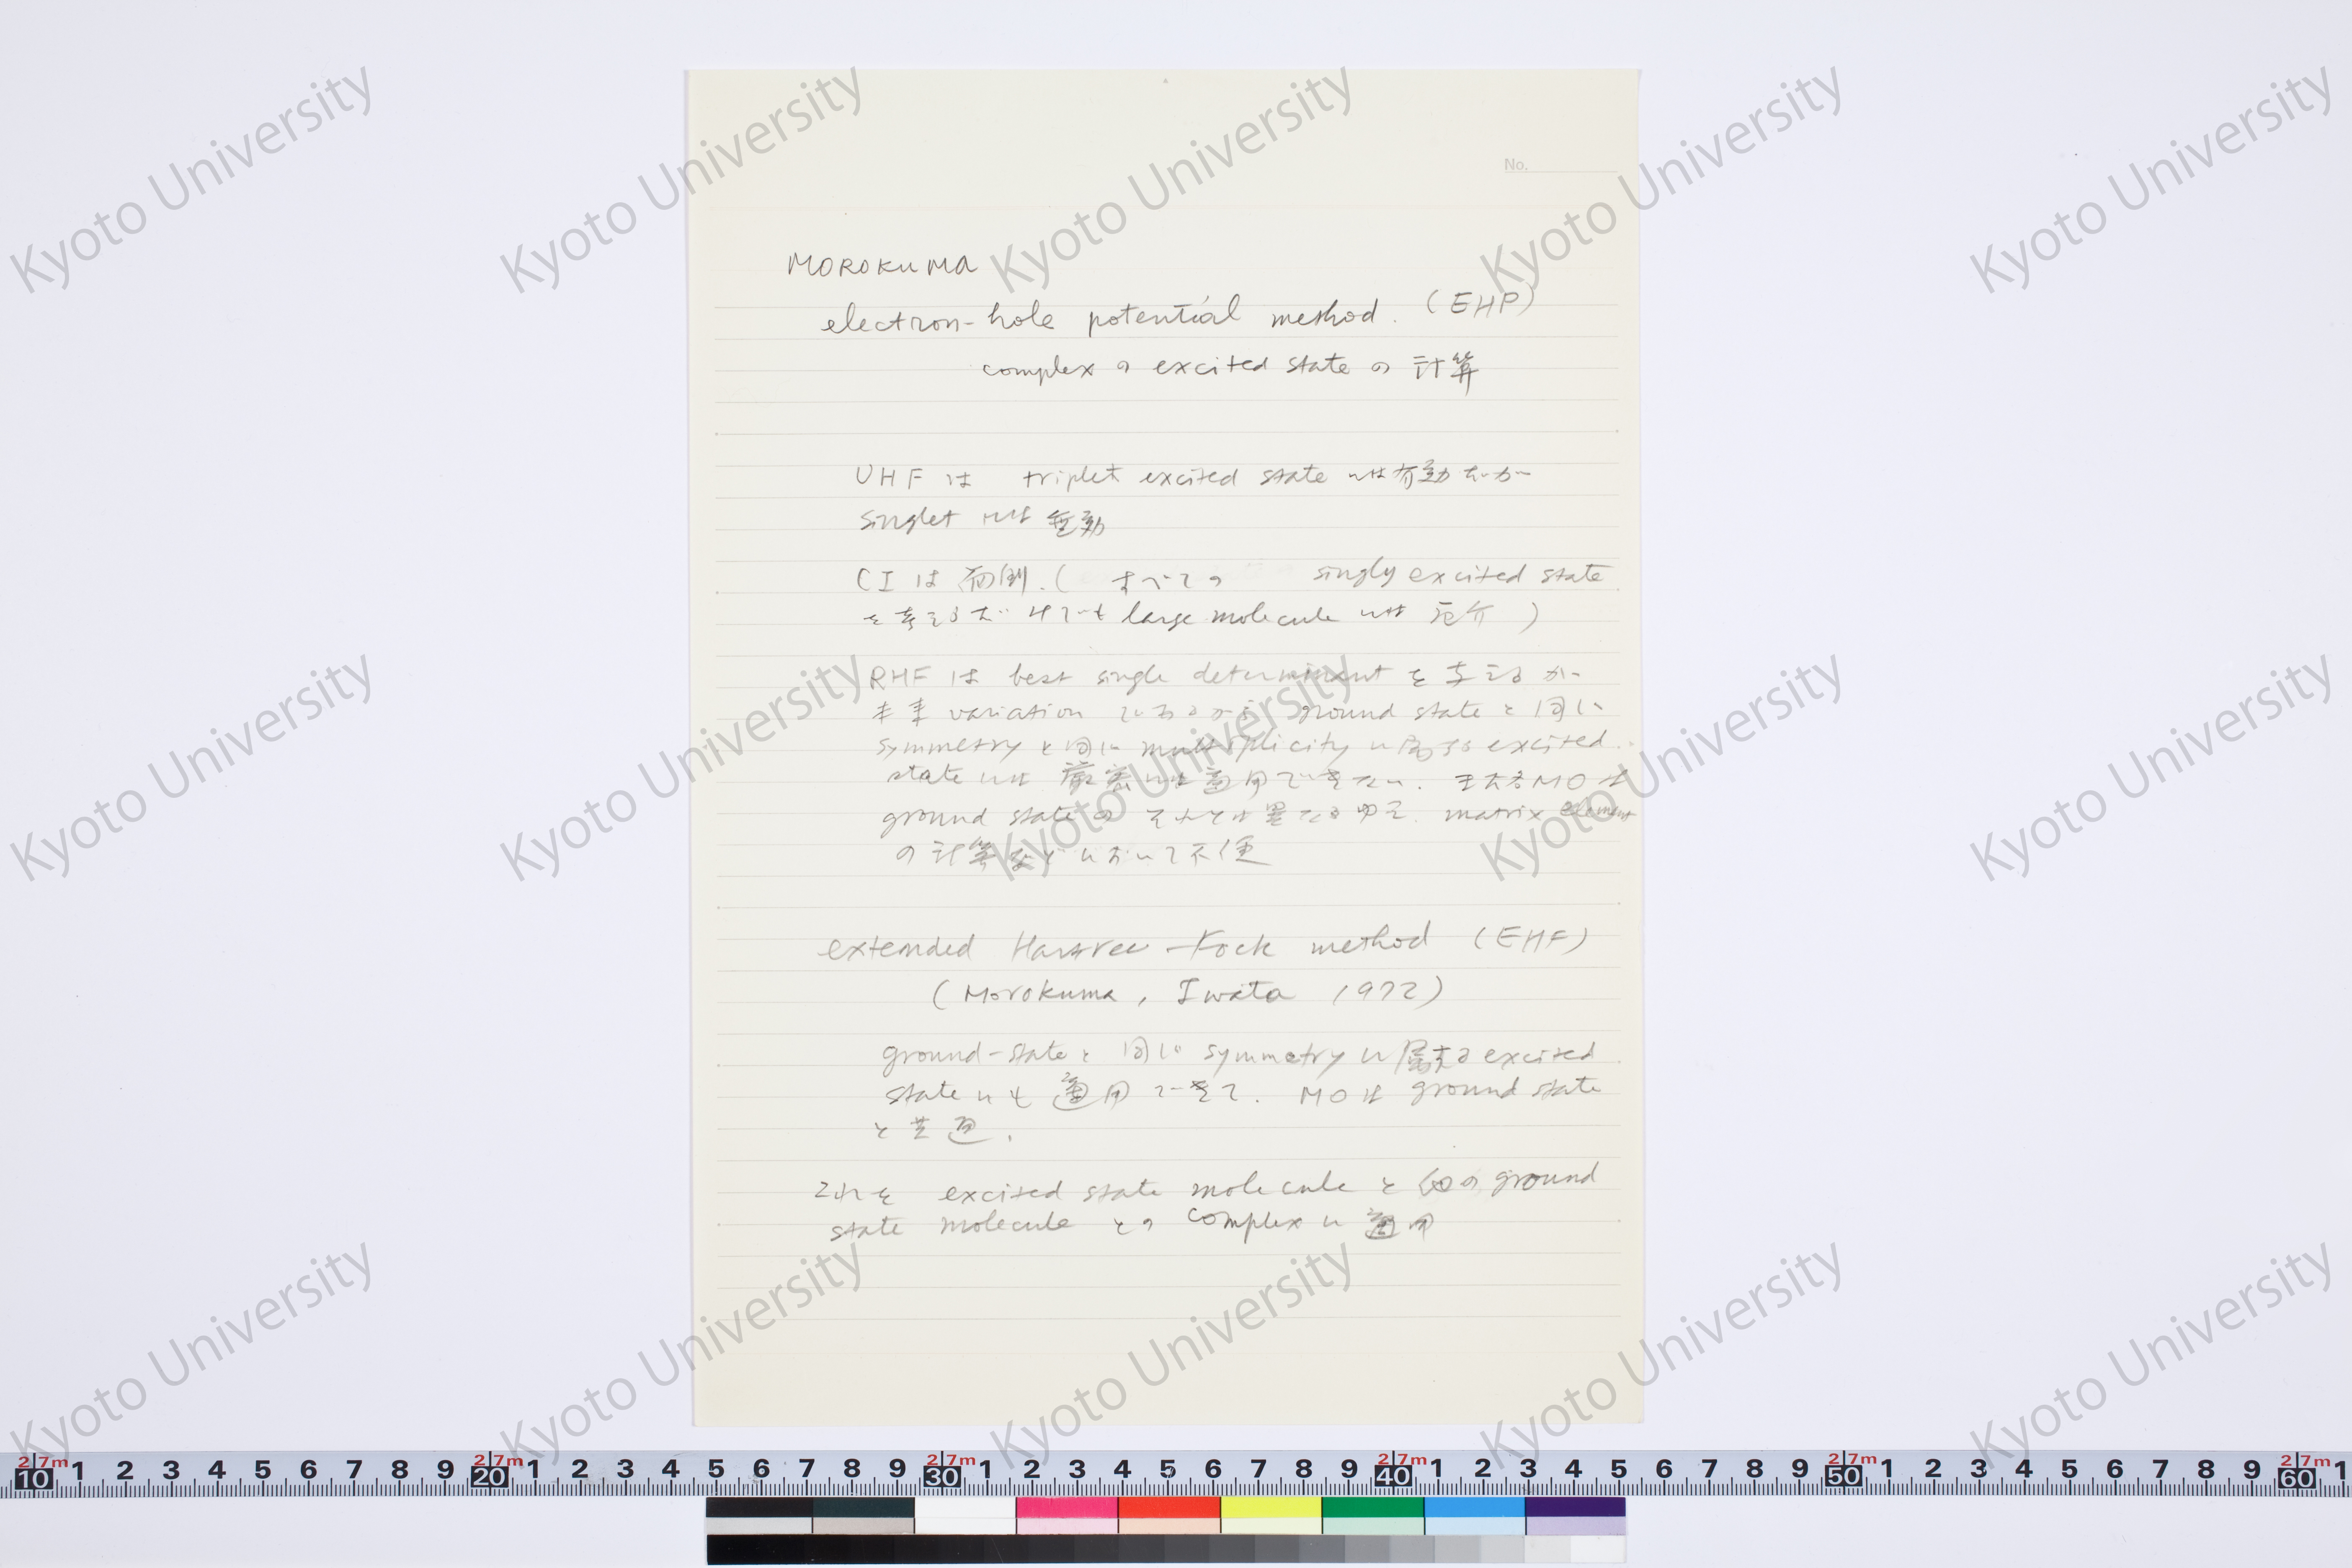 No.
MOROKUMA
electron-hole potential method. (EHP)
complex の excited state の 計算
UHF は triplet excited state には有効だが
singlet には 無効
CI は 面倒. ( すべての singly excited state
を考えるだけでも large molecule には 厄介 )
RHF は best single determinant を 考えるが
variation であるから ground state と 同じ
symmetry と 同じ multiplicity に 属する excited
state には 厳密には適用できない. また MO は
ground state の それとは異なるゆえ. matrix element
の 計算などにおいて不便
extended Hartree-Fock method (EHF)
(Morokuma, Iwata 1972)
ground-state と 同じ symmetry に 属する excited
state にも 適用できて. MO は ground state
と 共通.
これを excited state molecule と 他の ground
state molecule との complex に 適用
Kyoto University